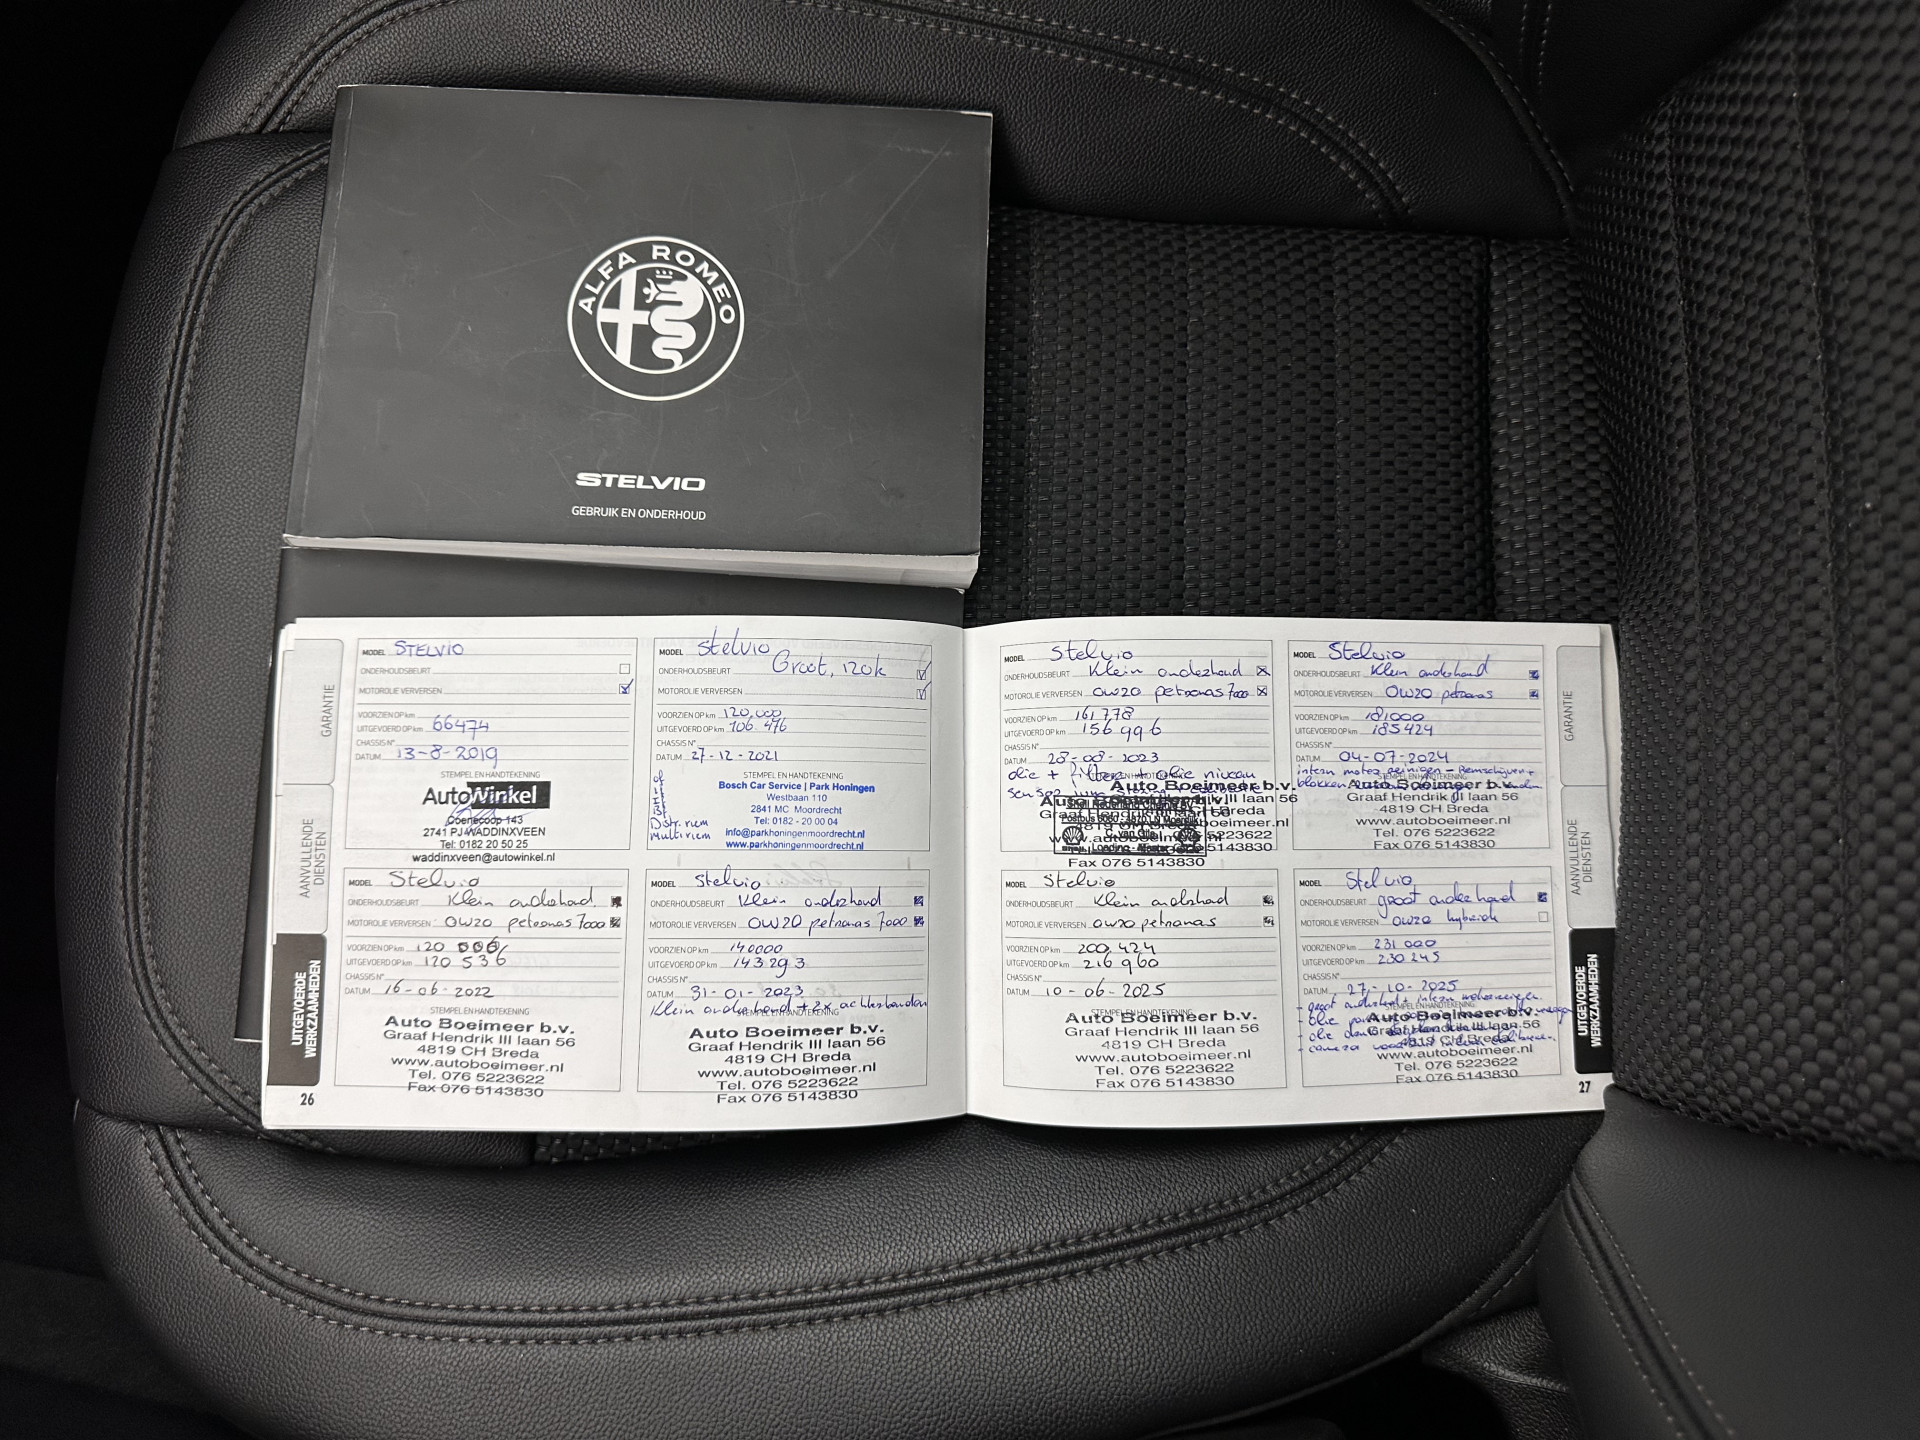 ALFA ROMEO
STELVIO
GEBRUIK EN ONDERHOUD
GARANTIE
AANVULLENDE DIENSTEN
UITGEVOERDE WERKZAAMHEDEN
MODEL STELVIO
ONDERHOUDSBEURT
MOTOROLIE VERVERSEN
VOORZIEN OP km
UITGEVOERD OP km 66474
CHASSIS N°
DATUM 13-8-2019
STEMPEL EN HANDTEKENING
AutoWinkel
Coenecoop 143
2741 PJ WADDINXVEEN
Tel: 0182 20 50 25
waddinxveen@autowinkel.nl
MODEL Stelvio
ONDERHOUDSBEURT Groot, 120k
MOTOROLIE VERVERSEN
VOORZIEN OP km 120.000
UITGEVOERD OP km 106.476
CHASSIS N°
DATUM 27-12-2021
STEMPEL EN HANDTEKENING
Bosch Car Service | Park Honingen
Westbaan 110
2841 MC Moordrecht
Tel: 0182 - 20 00 04
info@parkhoningenmoordrecht.nl
www.parkhoningenmoordrecht.nl
Distr. riem
Multiriem
MODEL Stelvio
ONDERHOUDSBEURT Klein onderhoud
MOTOROLIE VERVERSEN 0W20 petronas 7000
VOORZIEN OP km 120 000
UITGEVOERD OP km 120 536
CHASSIS N°
DATUM 16-06-2022
STEMPEL EN HANDTEKENING
Auto Boeimeer b.v.
Graaf Hendrik III laan 56
4819 CH Breda
www.autoboeimeer.nl
Tel. 076 5223622
Fax 076 5143830
MODEL Stelvio
ONDERHOUDSBEURT Klein onderhoud
MOTOROLIE VERVERSEN 0W20 petronas 7000
VOORZIEN OP km 140000
UITGEVOERD OP km 143293
CHASSIS N°
DATUM 31-01-2023
Klein onderhoud + 2x achterbanden
STEMPEL EN HANDTEKENING
Auto Boeimeer b.v.
Graaf Hendrik III laan 56
4819 CH Breda
www.autoboeimeer.nl
Tel. 076 5223622
Fax 076 5143830
26
MODEL Stelvio
ONDERHOUDSBEURT Klein onderhoud
MOTOROLIE VERVERSEN 0W20 petronas 7000
VOORZIEN OP km 161 778
UITGEVOERD OP km 156 996
CHASSIS N°
DATUM 28-08-2023
olie + filters + olie niveau
sensor
Auto Boeimeer b.v.
Graaf Hendrik III laan 56
4819 CH Breda
www.autoboeimeer.nl
Tel. 076 5223622
Fax 076 5143830
MODEL Stelvio
ONDERHOUDSBEURT Klein onderhoud
MOTOROLIE VERVERSEN 0W20 petronas
VOORZIEN OP km 181000
UITGEVOERD OP km 185424
CHASSIS N°
DATUM 04-07-2024
intern motor reinigen - Remschijven +
blokken
Auto Boeimeer b.v.
Graaf Hendrik III laan 56
4819 CH Breda
www.autoboeimeer.nl
Tel. 076 5223622
Fax 076 5143830
MODEL Stelvio
ONDERHOUDSBEURT Klein onderhoud
MOTOROLIE VERVERSEN 0w20 petronas
VOORZIEN OP km 200.424
UITGEVOERD OP km 216960
CHASSIS N°
DATUM 10-06-2025
STEMPEL EN HANDTEKENING
Auto Boeimeer b.v.
Graaf Hendrik III laan 56
4819 CH Breda
www.autoboeimeer.nl
Tel. 076 5223622
Fax 076 5143830
MODEL Stelvio
ONDERHOUDSBEURT groot onderhoud
MOTOROLIE VERVERSEN 0W20 hybride
VOORZIEN OP km 231 000
UITGEVOERD OP km 230 245
CHASSIS N°
DATUM 27-10-2025
- groot onderhoud + intern motor reinigen.
- olie
- olie
- camera
Auto Boeimeer b.v.
Graaf Hendrik III laan 56
4819 CH Breda
www.autoboeimeer.nl
Tel. 076 5223622
Fax 076 5143830
GARANTIE
AANVULLENDE DIENSTEN
UITGEVOERDE WERKZAAMHEDEN
27